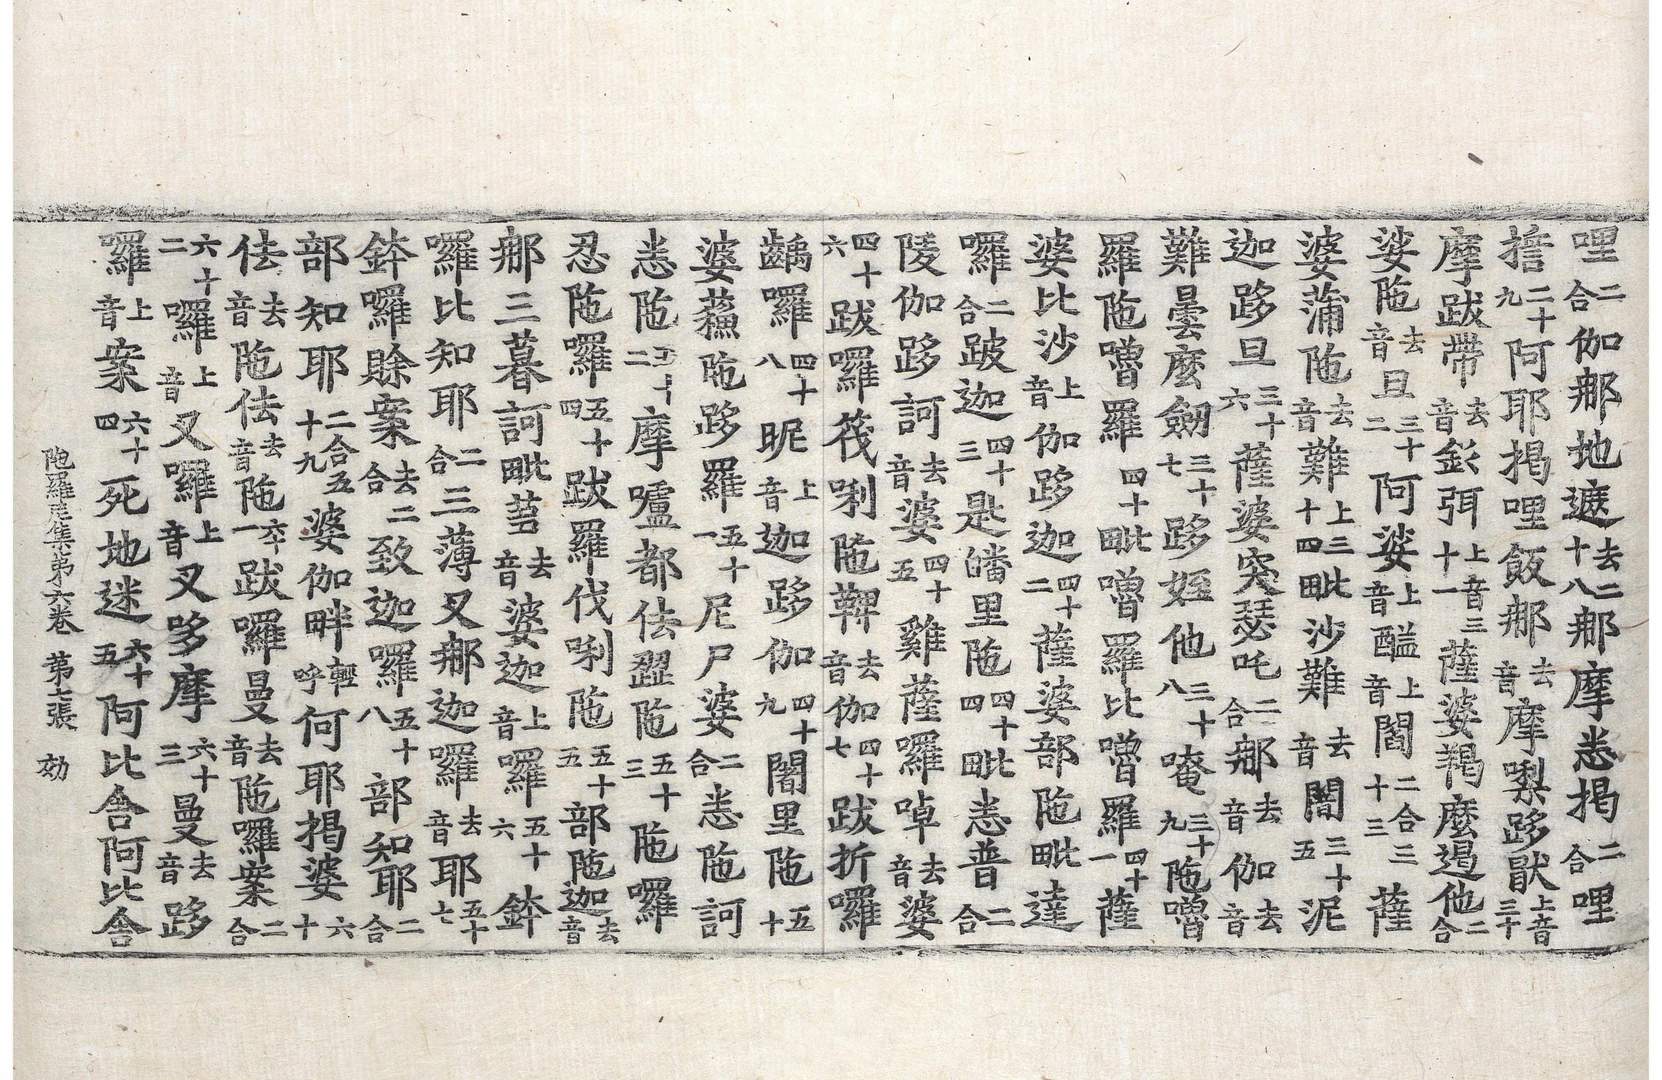 哩二合伽那地遮去二十八那摩悉揭二合哩
㨗二十九阿耶揭哩飯那去音摩㗚跢獃上音三十
摩跋帶去音釤弭上音三十一薩婆羯麼遏他二合
娑陁去音旦三十二阿娑上音醯上音闇二合三十三薩
婆蒲陁去音難上三十四毗沙難去音闇三十五泥
迦跢旦三十六薩婆突瑟吒二合那去音伽去音
難曇麼劒三十七跢姪他三十八唵三十九陁嚕
羅陁嚕羅四十毗嚕羅比嚕羅四十一薩
婆比沙上音伽跢迦四十二薩婆部陁毗達
囉二合跛迦四十三是皤里陁四十四毗悉普二合
陵伽跢訶去音婆四十五雞薩囉啅去音婆
四十六跋囉筏唎陁鞞去音伽四十七跋折囉
齲囉四十八昵上音迦跢伽四十九闇里陁五十
婆蘓陁跢羅五十一尼尸婆二合悉陁訶
悉陁五十二摩嚧都佉翆陁五十三陁囉
忍陁囉五十四跋羅伐唎陁五十五部陁迦去音
那三暮訶毗去音婆迦上音囉五十六鉢
囉比知耶二合三薄叉那迦囉去音耶五十七
鉢囉賒案去二合致迦羅五十八部知耶二合
部知耶二合五十九婆伽畔輕呼何耶揭婆六十
佉去音陁佉去音陁六十一跋囉曼去音陁囉案二合
六十二囉上音叉囉上音叉哆摩六十三曼去音跢
羅上音案六十四死地迷六十五阿比舍阿比舍
陁羅尼集第六卷 第七張 効